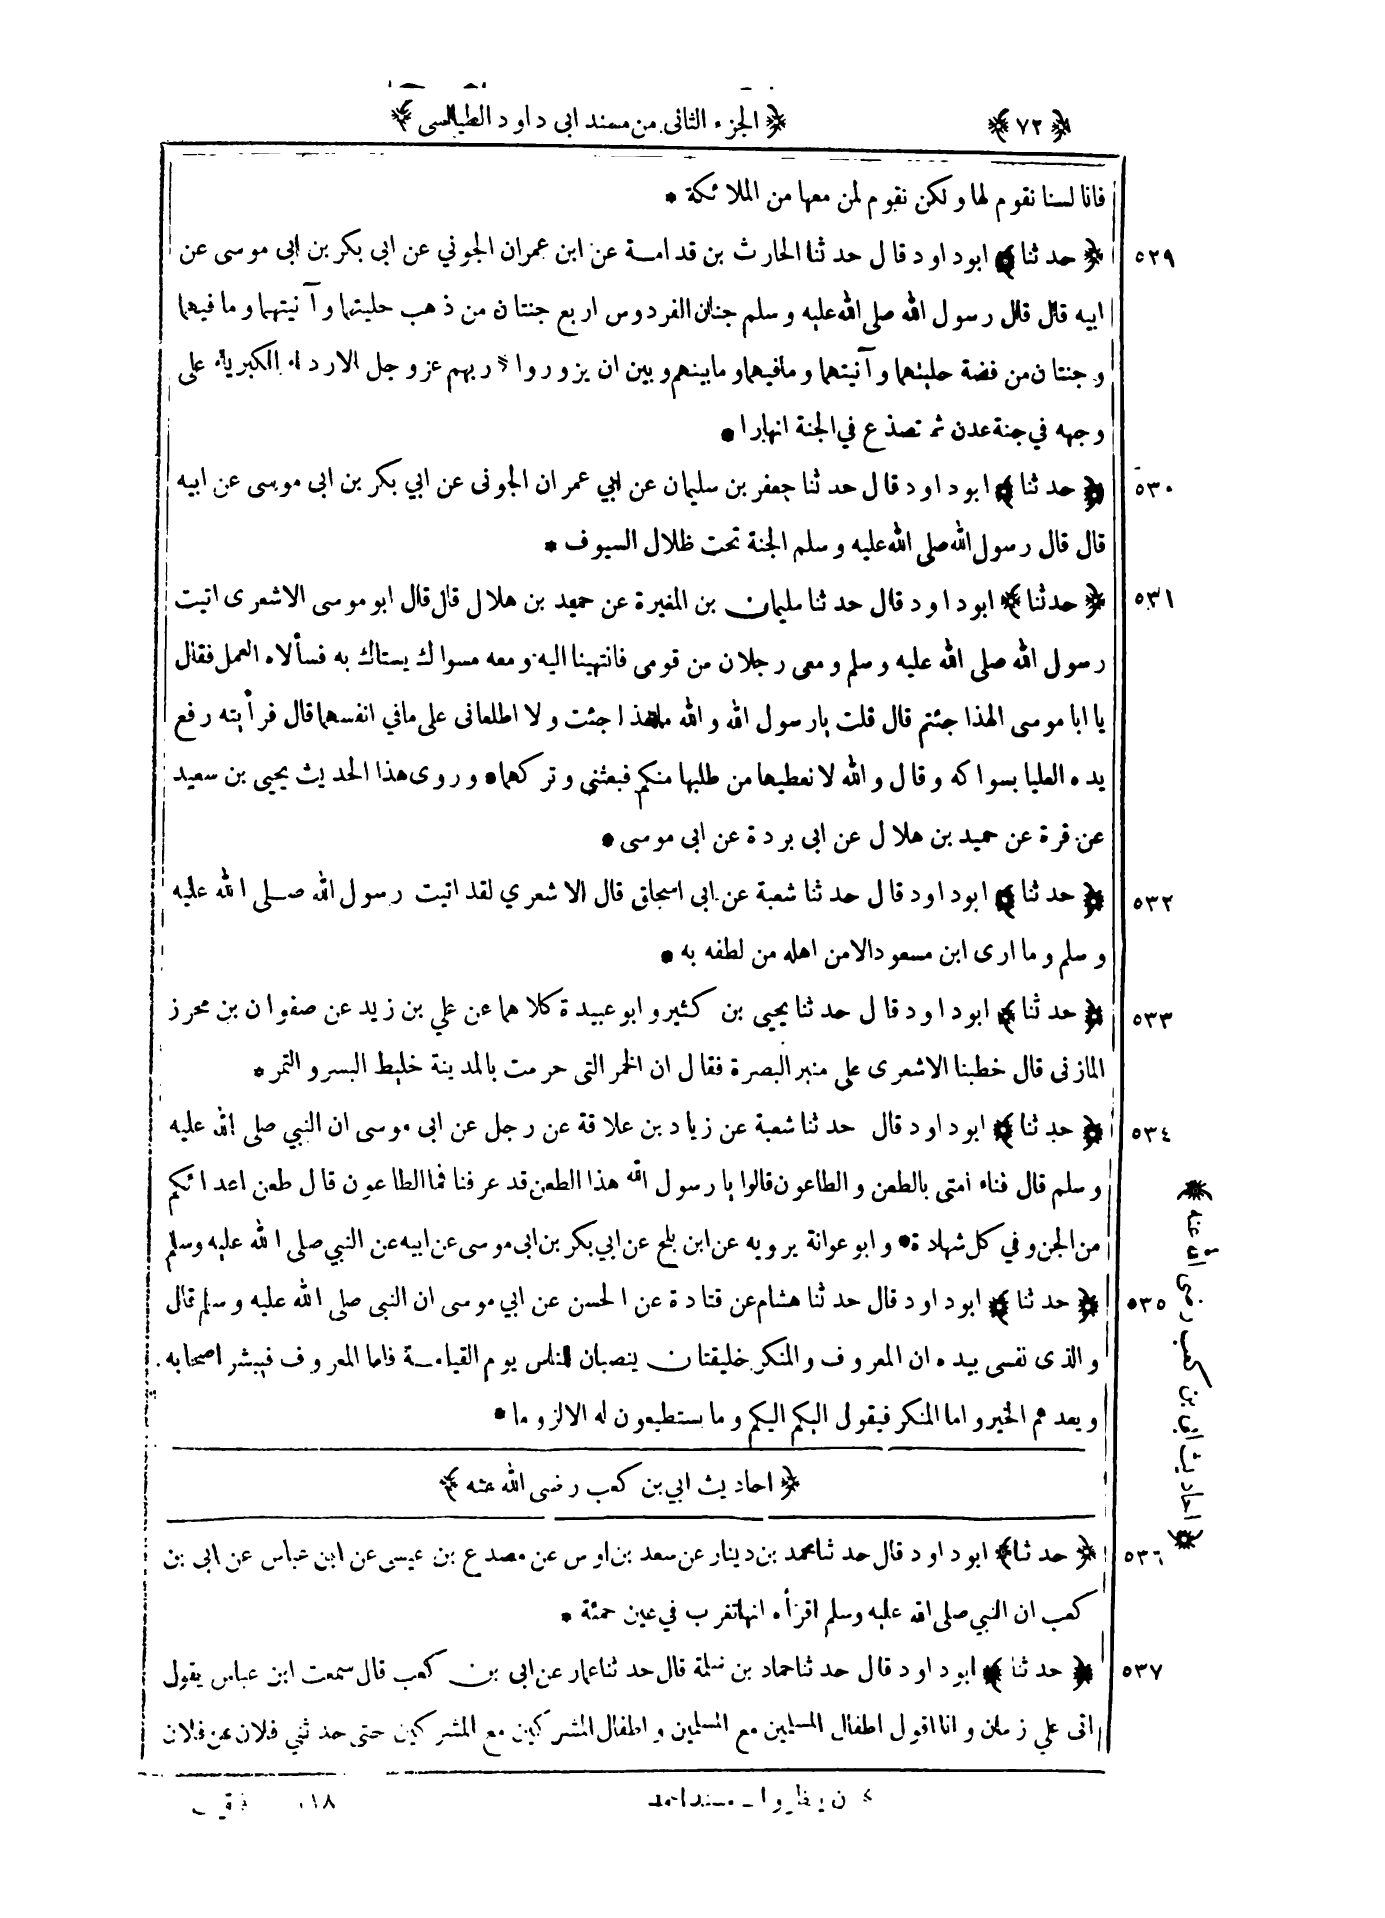 ﴿٧٣﴾ ﴿الجزء الثانى من مسند ابى داود الطيالسى﴾
فانا لسنا نقوم لها ولكن نقوم لمن معها من الملائكة *
٥٢٩ ﴿حدثنا﴾ ابوداود قال حدثنا الحارث بن قدامة عن ابن عمران الجوني عن ابى بكر بن ابى موسى عن
ابيه قال قال رسول الله صلى الله عليه وسلم جنان الفردوس اربع جنتان من ذهب حليتهما وآنيتهما وما فيهما
وجنتان من فضة حليتهما وآنيتهما ومافيهما ومابينهم وبين ان يزوروا * ربهم عزوجل الارداء الكبرياء على
وجهه في جنة عدن ثم تصذع في الجنة انهارا *
٥٣٠ ﴿حدثنا﴾ ابوداود قال حدثنا جعفر بن سليمان عن ابي عمران الجونى عن ابي بكر بن ابى موسى عن ابيه
قال قال رسول الله صلى الله عليه وسلم الجنة تحت ظلال السيوف *
٥٣١ ﴿حدثنا﴾ ابوداود قال حدثنا سليمان بن المغيرة عن حميد بن هلال قال قال ابو موسى الاشعرى اتيت
رسول الله صلى الله عليه وسلم ومعى رجلان من قومى فانتهينا اليه ومعه مسواك يستاك به فسألاه العمل فقال
يا ابا موسى الهذا جئتم قال قلت يارسول الله والله مالهذا جئت ولا اطلعانى على مافي انفسهما قال فرأيته رفع
يده العليا بسواكه وقال والله لا نعطيها من طلبها منكم فبعثنى وتركهما * وروى هذا الحديث يحيى بن سعيد
عن قرة عن حميد بن هلال عن ابى بردة عن ابى موسى *
٥٣٢ ﴿حدثنا﴾ ابوداود قال حدثنا شعبة عن ابى اسحاق قال الاشعري لقد اتيت رسول الله صلى الله عليه
وسلم وما ارى ابن مسعود الامن اهله من لطفه به *
٥٣٣ ﴿حدثنا﴾ ابوداود قال حدثنا يحيى بن كثير وابوعبيدة كلاهما عن علي بن زيد عن صفوان بن محرز
المازنى قال خطبنا الاشعرى على منبر البصرة فقال ان الخمر التى حرمت بالمدينة خليط البسر والتمر *
٥٣٤ ﴿حدثنا﴾ ابوداود قال حدثنا شعبة عن زياد بن علاقة عن رجل عن ابى موسى ان النبي صلى الله عليه
وسلم قال فناء امتى بالطعن والطاعون قالوا يا رسول الله هذا الطعن قد عرفنا فما الطاعون قال طعن اعدائكم
من الجن وفي كل شهادة * وابوعوانة يرويه عن ابن بلج عن ابي بكر بن ابى موسى عن ابيه عن النبي صلى الله عليه وسلم
٥٣٥ ﴿حدثنا﴾ ابوداود قال حدثنا هشام عن قتادة عن الحسن عن ابي موسى ان النبى صلى الله عليه وسلم قال
والذى نفسى بيده ان المعروف والمنكر خليقتان ينصبان للناس يوم القيامة فاما المعروف فيبشر اصحابه
ويعدهم الخير واما المنكر فيقول اليكم اليكم وما يستطيعون له الالزوما *
﴿احاديث ابي بن كعب رضى الله عنه﴾
﴿احاديث ابي بن كعب رضى الله عنه﴾
٥٣٦ ﴿حدثنا﴾ ابوداود قال حدثنا محمد بن دينار عن سعد بن اوس عن مصدع بن عيسى عن ابن عباس عن ابى بن
كعب ان النبي صلى الله عليه وسلم اقرأه انها تغرب في عين حمئة *
٥٣٧ ﴿حدثنا﴾ ابوداود قال حدثنا حماد بن سلمة قال حدثنا عمار عن ابى بن كعب قال سمعت ابن عباس يقول
اتى علي زمان وانا اقول اطفال المسلمين مع المسلمين واطفال المشركين مع المشركين حتى حدثني فلان عن فلان
مسند احمد ١٨